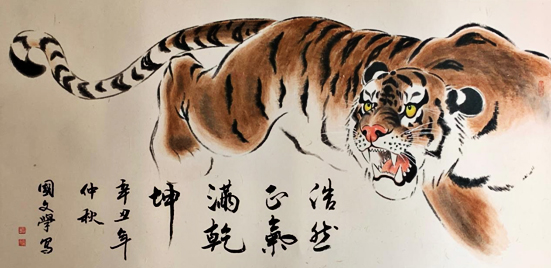 浩然
正氣
滿乾
坤
辛丑年
仲秋
國文學寫